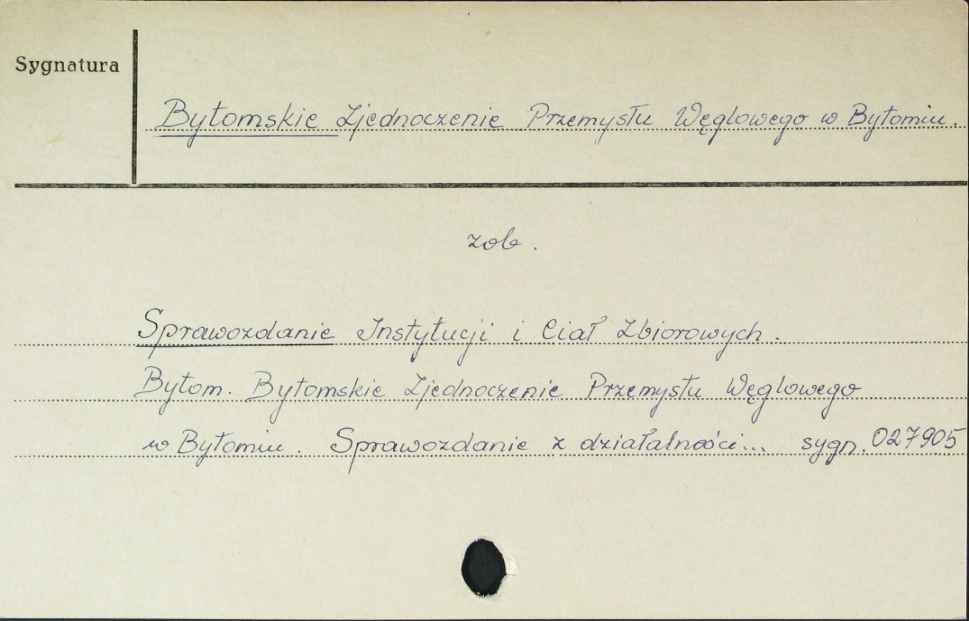 Sygnatura
Bytomskie Zjednoczenie Przemysłu Węglowego w Bytomiu.
zob.
Sprawozdanie Instytucji i Ciał Zbiorowych.
Bytom. Bytomskie Zjednoczenie Przemysłu Węglowego
w Bytomiu. Sprawozdanie z działalności... sygn. 027905